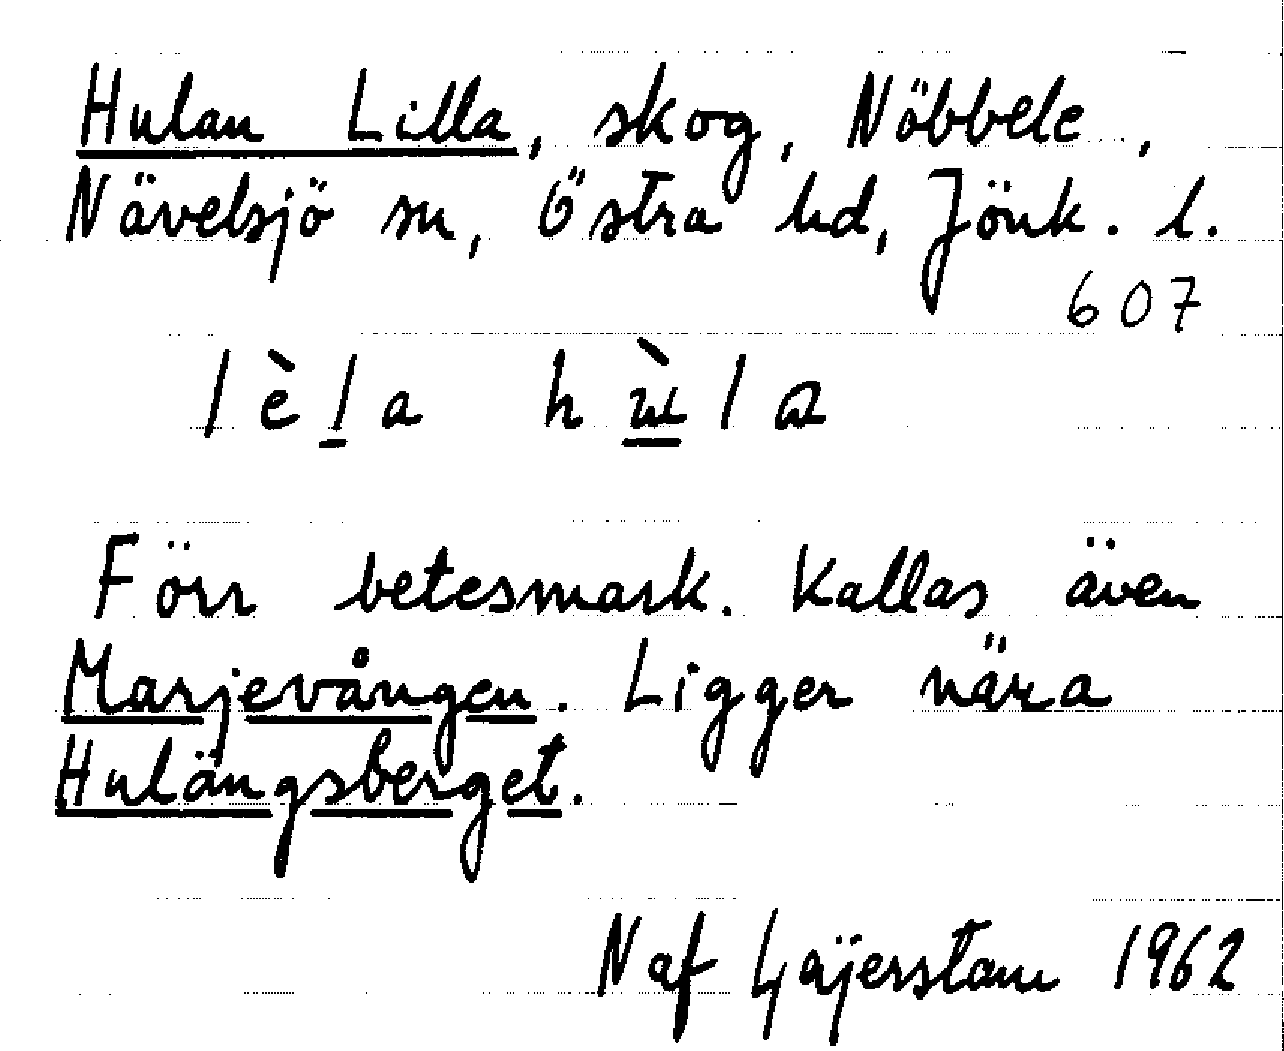 Hulan Lilla, skog, Nöbbele,
Nävelsjö sn, Östra hd, Jönk. l.
607
lèla hùla
Förr betesmark. Kallas även
Marjevången. Ligger nära
Hulängsberget.
Naf Gajerstam 1962